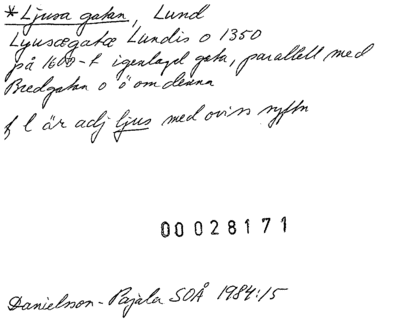 *Ljusa gatan, Lund
Lyusægatæ Lundis o 1350
på 1600-t igenlagd gata, parallell med
Bredgatan o ö om denna
f l är adj ljus med oviss syftn
00028171
Danielsson-Pajala SOÅ 1984:15